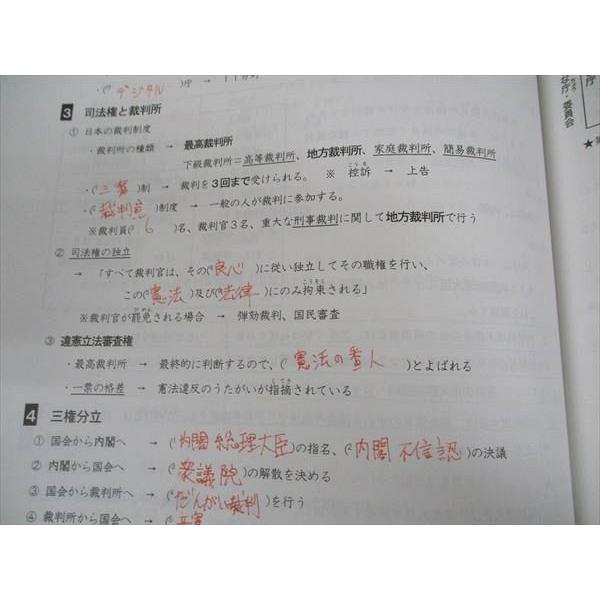 ・( デジタル )庁 →
3 司法権と裁判所
① 日本の裁判制度
・裁判所の種類 → 最高裁判所
下級裁判所＝高等裁判所、地方裁判所、家庭裁判所、簡易裁判所
・( 三審 )制 → 裁判を3回まで受けられる。 ※ 控訴 → 上告
・( 裁判官 )制度 → 一般の人が裁判に参加する。
※裁判員( 6 )名、裁判官3名、重大な刑事裁判に関して地方裁判所で行う
② 司法権の独立
→ 「すべて裁判官は、その( 良心 )に従い独立してその職権を行い、
この( 憲法 )及び( 法律 )にのみ拘束される」
※裁判官が罷免される場合 → 弾劾裁判、国民審査
③ 違憲立法審査権
・最高裁判所 → 最終的に判断するので、( 憲法の番人 )とよばれる
・一票の格差 → 憲法違反のうたがいが指摘されている
4 三権分立
① 国会から内閣へ → ( 内閣総理大臣 )の指名、( 内閣不信認 )の決議
② 内閣から国会へ → ( 衆議院 )の解散を決める
③ 国会から裁判所へ → ( だんがい裁判 )を行う
④ 裁判所から国会へ → (
庁・委員会
★